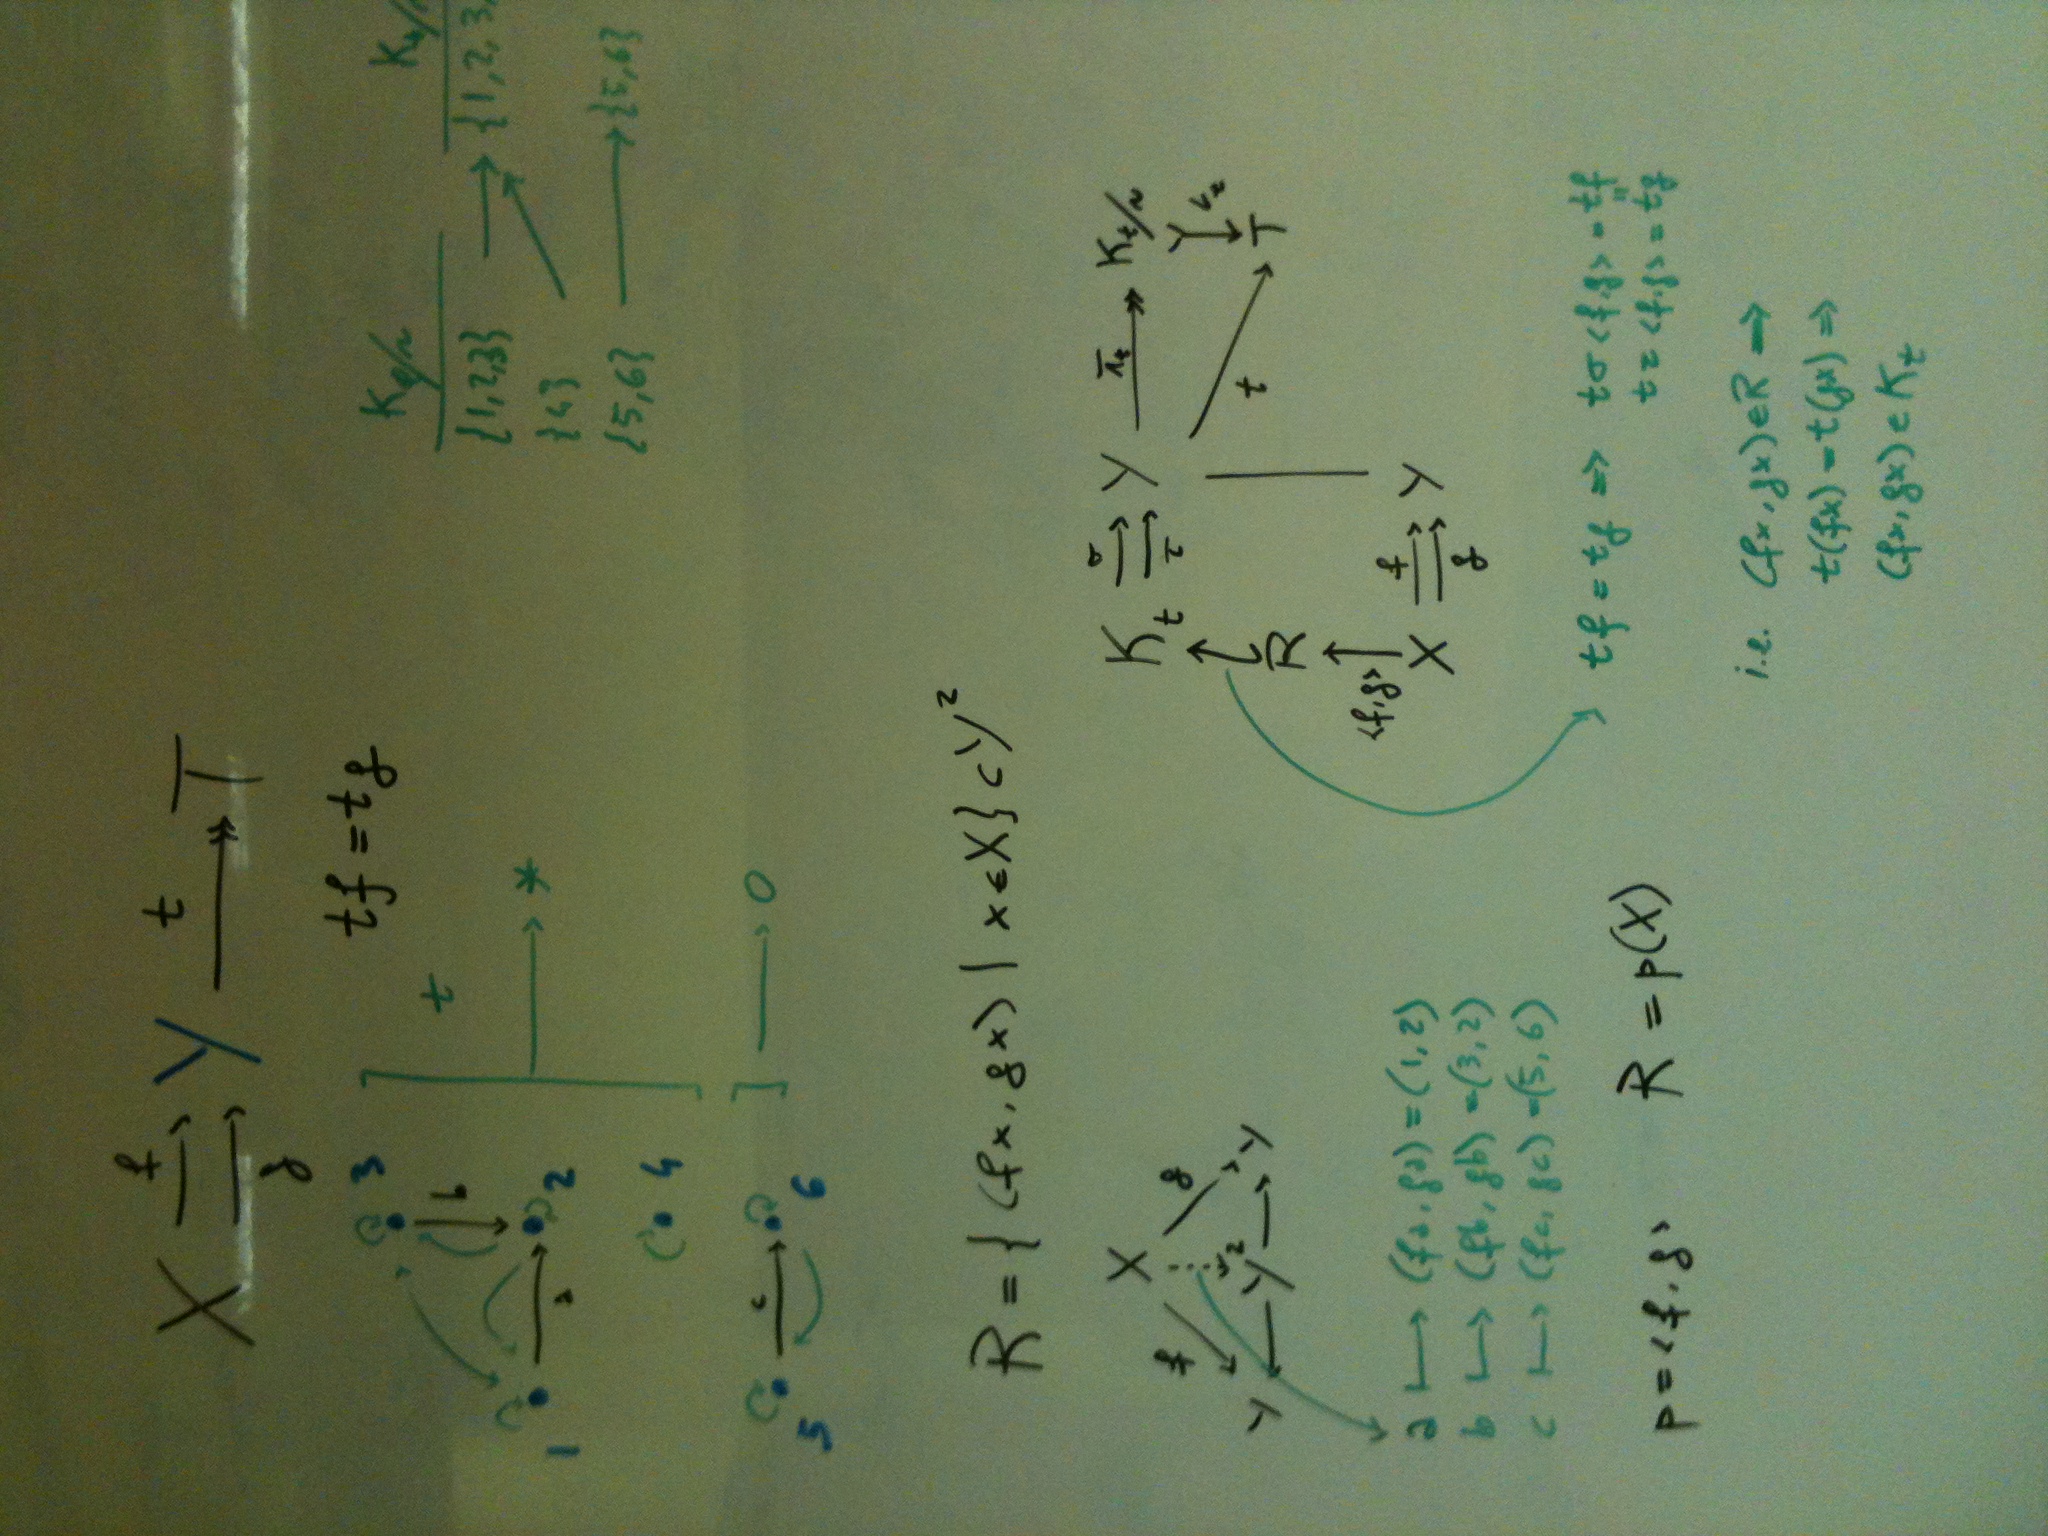 X f g Y t T
tf = tg
3
b
1 a 2
4
t
*
5 c 6
O
K /~ K
{1,2,3} {1,2,3,
{4}
{5,6} {5,6}
R = { (fx, gx) | x ∈ X } ⊂ Y²
X
f g
Y Y² Y
a ↦ (fa, ga) = (1,2)
b ↦ (fb, gb) = (3,2)
c ↦ (fc, gc) = (5,6)
p = <f,g> R = p(X)
K_t σ τ Y π_t K_t/~
t T
R
<f,g>
X f g Y
tf = tg ⇒ tσ<f,g> = tf
"
tτ<f,g> = tg
i.e. (fx, gx) ∈ R ⇒
t(fx) = t(gx) ⇒
(fx, gx) ∈ K_t